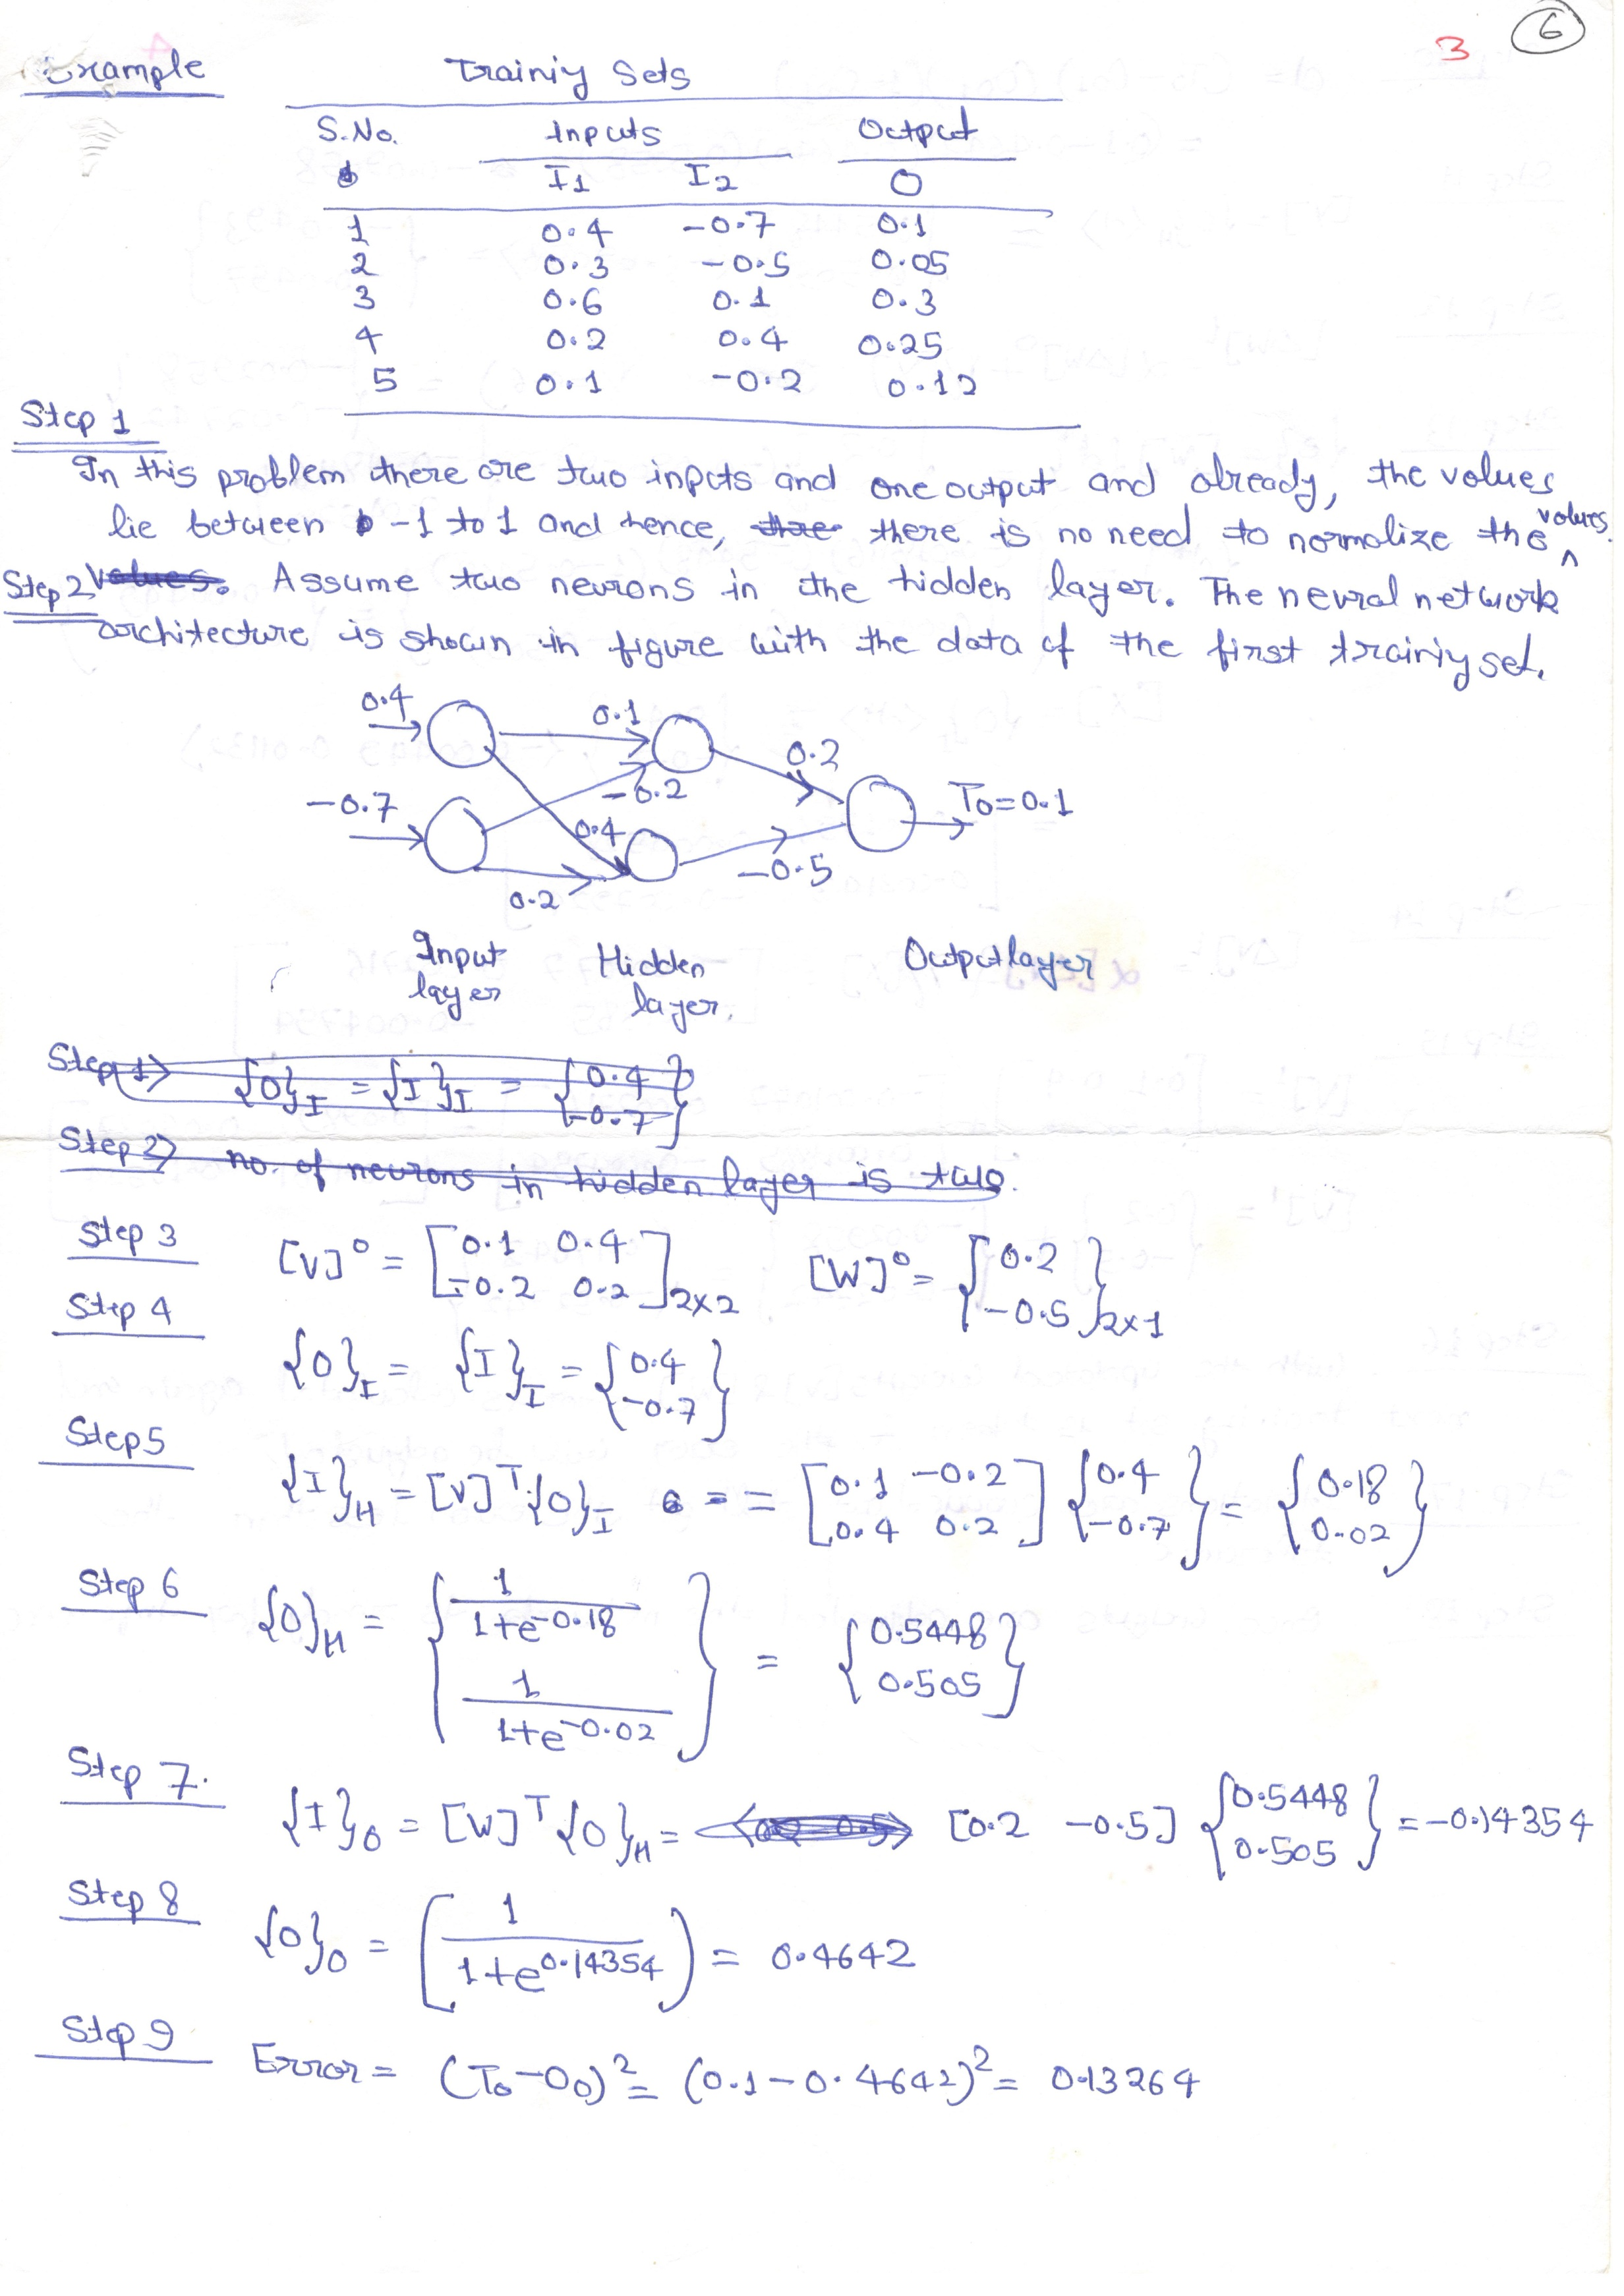 3 6
Example Trainiy Sets
S.No. Inputs Output
I1 I2 O
1 0.4 -0.7 0.1
2 0.3 -0.5 0.05
3 0.6 0.1 0.3
4 0.2 0.4 0.25
5 0.1 -0.2 0.12
Step 1
In this problem there are two inputs and one output and already, the values
lie between -1 to 1 and hence, there is no need to normalize the values.
Step 2 values. Assume two neurons in the hidden layer. The neural network
architecture is shown in figure with the data of the first trainiy set.
0.4 0.1 0.2
-0.7 -0.2 0.4 To=0.1
0.2 -0.5
Input Hidden Outputlayer
layer layer.
Step 1) {O}I = {I}I = {0.4
-0.7}
Step 2) no. of neurons in hidden layer is two.
Step 3 [V]⁰ = [0.1 0.4
-0.2 0.2]2×2 [W]⁰ = {0.2
-0.5}2×1
Step 4
{O}I = {I}I = {0.4
-0.7}
Step 5
{I}H = [V]ᵀ{O}I = = [0.1 -0.2
0.4 0.2] {0.4
-0.7} = {0.18
0.02}
Step 6 {O}H = {1
1+e^-0.18
1
1+e^-0.02} = {0.5448
0.505}
Step 7.
{I}O = [W]ᵀ{O}H = [0.2 -0.5] {0.5448
0.505} = -0.14354
Step 8
{O}O = (1
1+e^0.14354) = 0.4642
Step 9
Error = (To-Oo)² = (0.1-0.4642)² = 0.13264